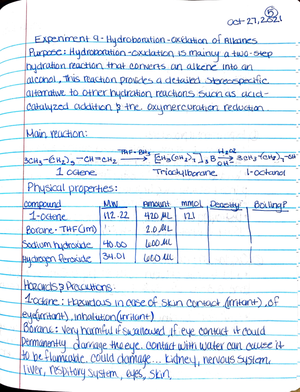 5
Oct-27, 2021
Experiment 9-Hydroboration-Oxidation of Alkanes
Purpose: Hydroboration-oxidation is mainly a two-step
hydration reaction that converts an alkene into an
alcohol. This reaction provides a detailed stereospecific
alternative to other hydration reactions such as acid-
catalyzed addition & the oxymercuration reduction
Main reaction:
3CH3-(CH2)5-CH=CH2 THF·BH3 → [CH3(CH2)7]3B H2O2 OH⁻ → 3CH3-(CH2)7-OH
1 octene Trioctylborane 1-octanol
Physical properties:
compound MW Amount mmol Density Boiling P
1-octene 112.22 420 ML 121
Borane·THF(1M) 2.0 ML
Sodium hydroxide 40.00 600 ML
Hydrogen Peroxide 34.01 600 ML
Hazards & Precautions
1-octane: Hazardous in case of skin contact (irritant), of
eye(irritant), inhalation(irritant)
Borane: Very harmful if swallowed, if eye contact it could
permanently damage the eye. contact with water can cause it
to be flammable. could damage... kidney, nervous system,
liver, respitory system, eyes, skin.